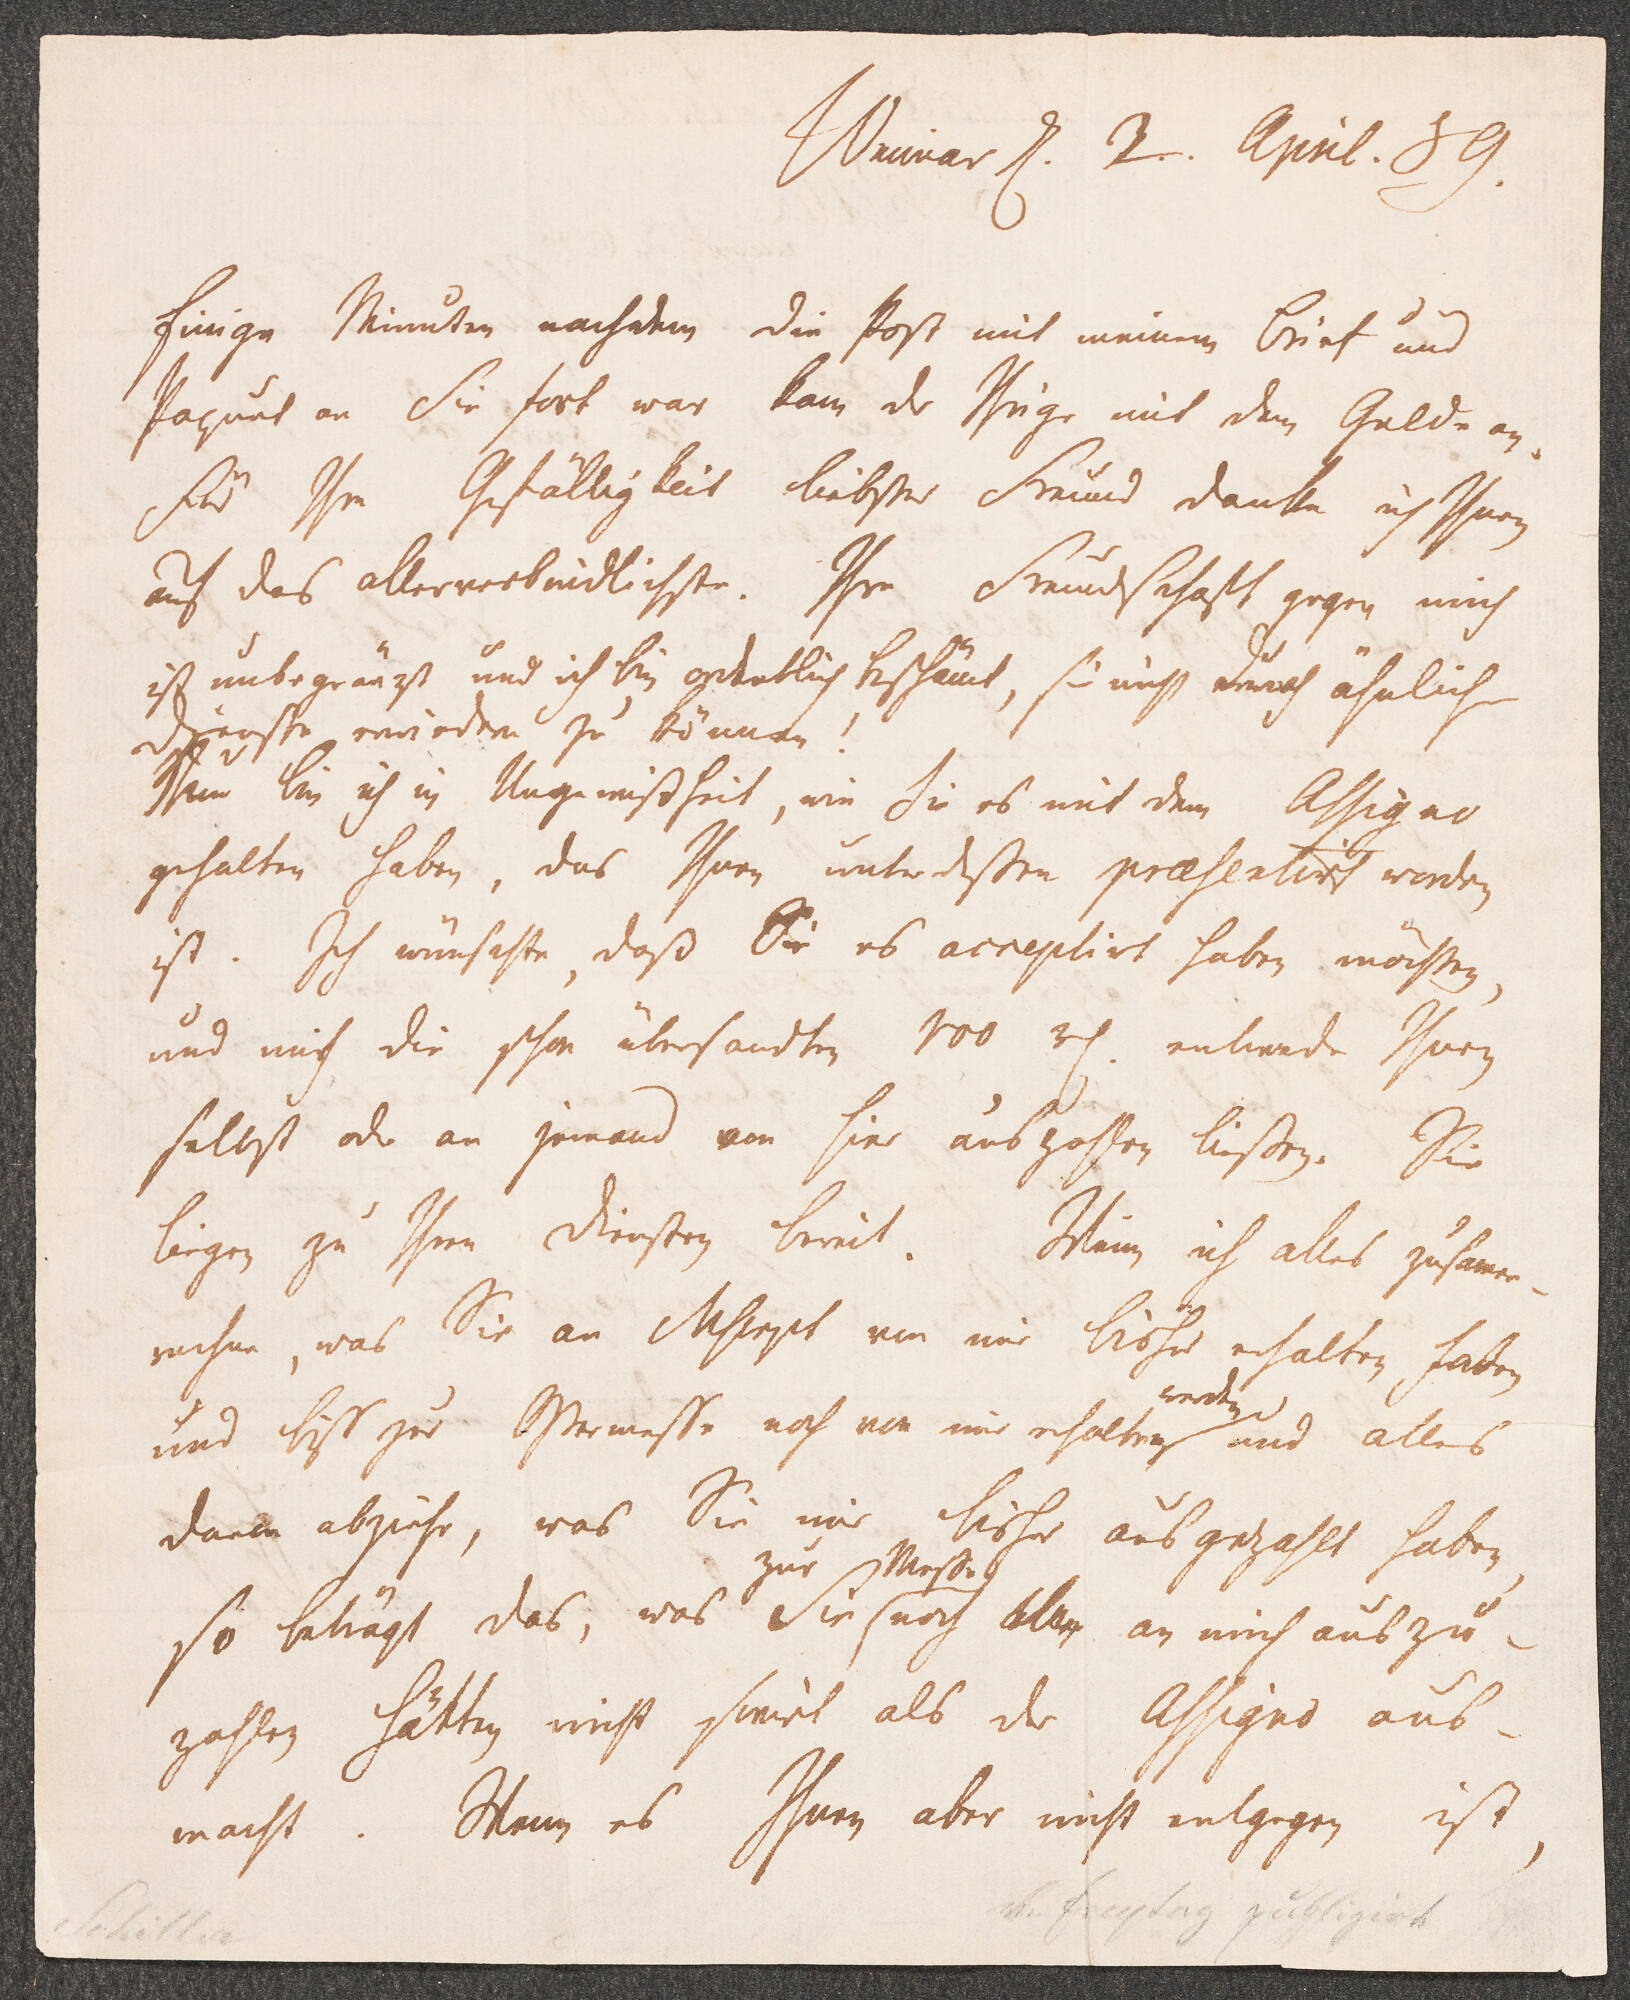 Weimar d. 2. April. 89.
Einige Minuten nachdem die Post mit meinem Brief und
Paquet an Sie fort war kam der Ihrige mit dem Gelde an.
Für Ihre Gefälligkeit liebster Freund danke ich Ihnen
auf das allerverbindlichste. Ihre Freundschaft gegen mich
ist unbegränzt und ich bin ordentlich beschämt, sie nicht durch ähnliche
Dienste erwiedern zu können!
Nun bin ich in Ungewißheit, wie Sie es mit dem Assigno
gehalten haben, das Ihnen unterdessen præsentirt worden
ist. Ich wünschte, daß Sie es acceptirt haben möchten,
und mich die schon übersandten 100 rth. entweder Ihnen
selbst oder an jemand von hier auszahlen liessen. Sie
liegen zu Ihren Diensten bereit. Wenn ich alles zusammen-
rechne, was Sie an Mscrpt von mir bisher erhalten haben
und biss zur Ostermesse noch von mir erhalten werden und alles
davon abziehe, was Sie mir bisher ausgezahlt haben,
so beträgt das, was Sie zur Messe noch an mich auszu-
zahlen hätten nicht soviel als der Assigno aus-
macht. Wenn es Ihnen aber nicht entgegen ist,
Schiller